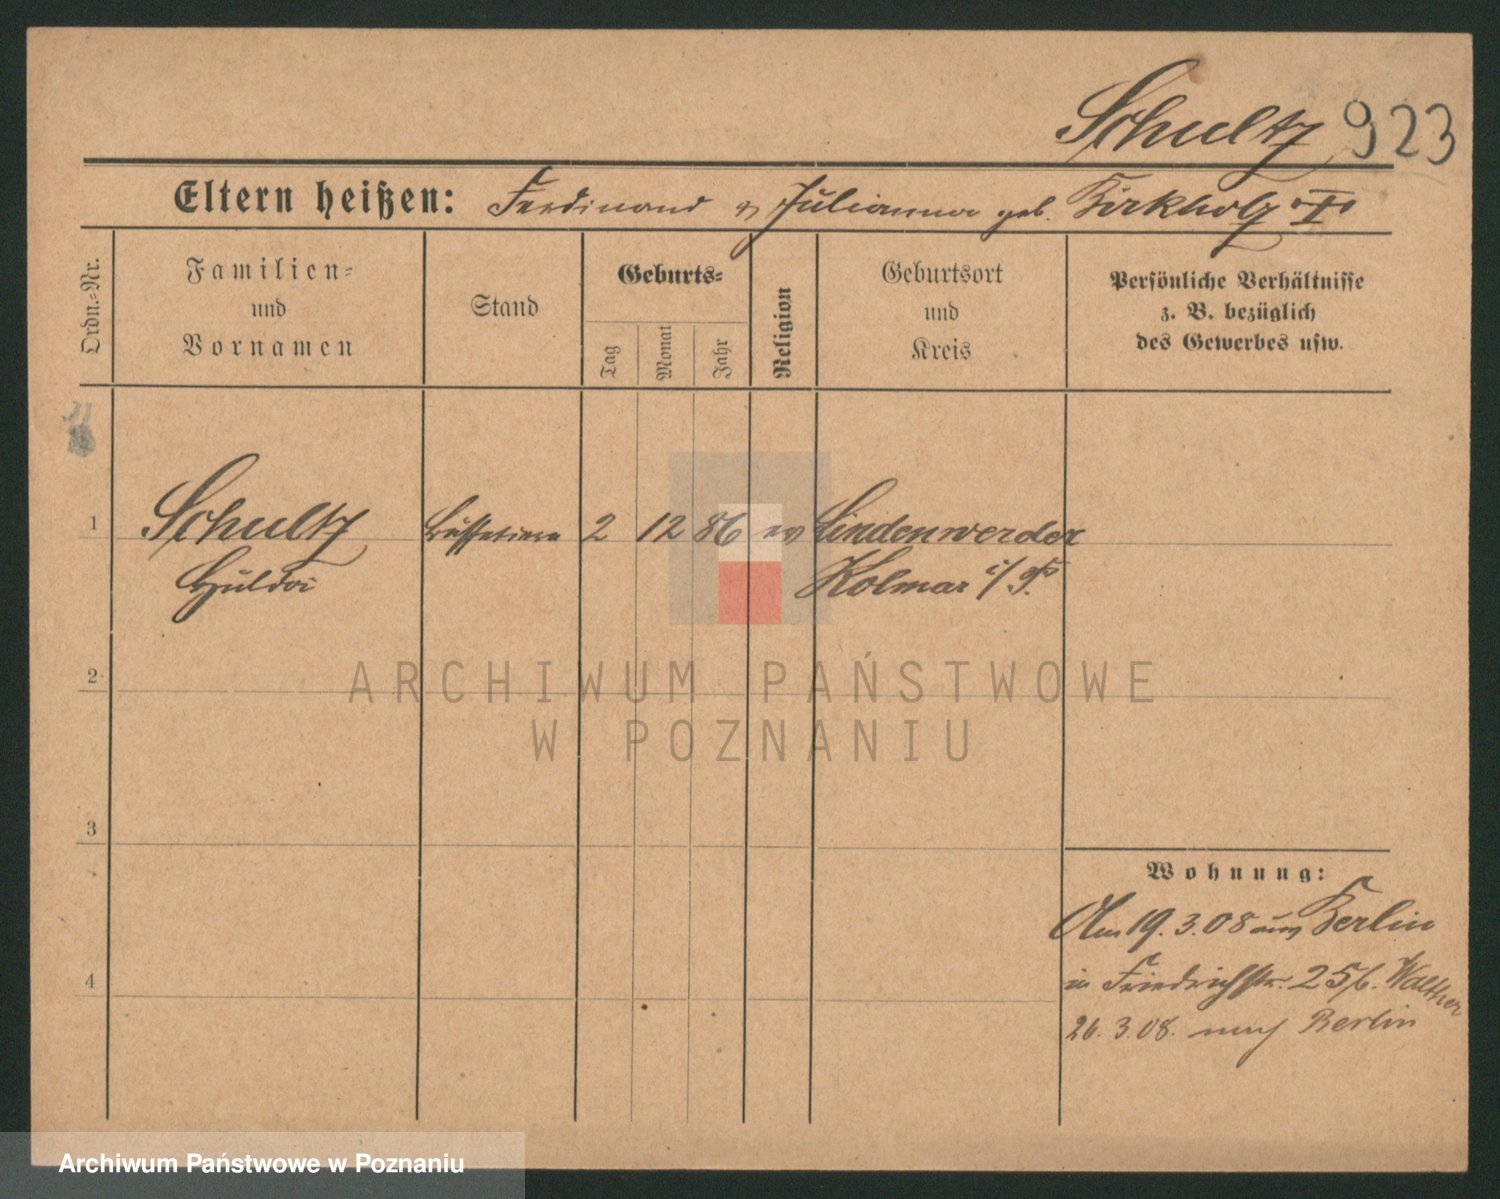 Schultz 923
Eltern heißen: Ferdinand u Julianna geb. Birkholz
Ordn.-Nr.
Familien-
und
Vornamen
Stand
Geburts-
Tag
Monat
Jahr
Religion
Geburtsort
und
Kreis
Persönliche Verhältnisse
z. B. bezüglich
des Gewerbes usw.
1 Schultz 2 12 86 ev Lindenwerder
Hulda Kolmar i/P.
2
3
4
Wohnung:
Am 19.3.08 aus Berlin
in Friedrichstr. 25 b. Walther
26.3.08. nach Berlin
ARCHIWUM PAŃSTWOWE
W POZNANIU
Archiwum Państwowe w Poznaniu